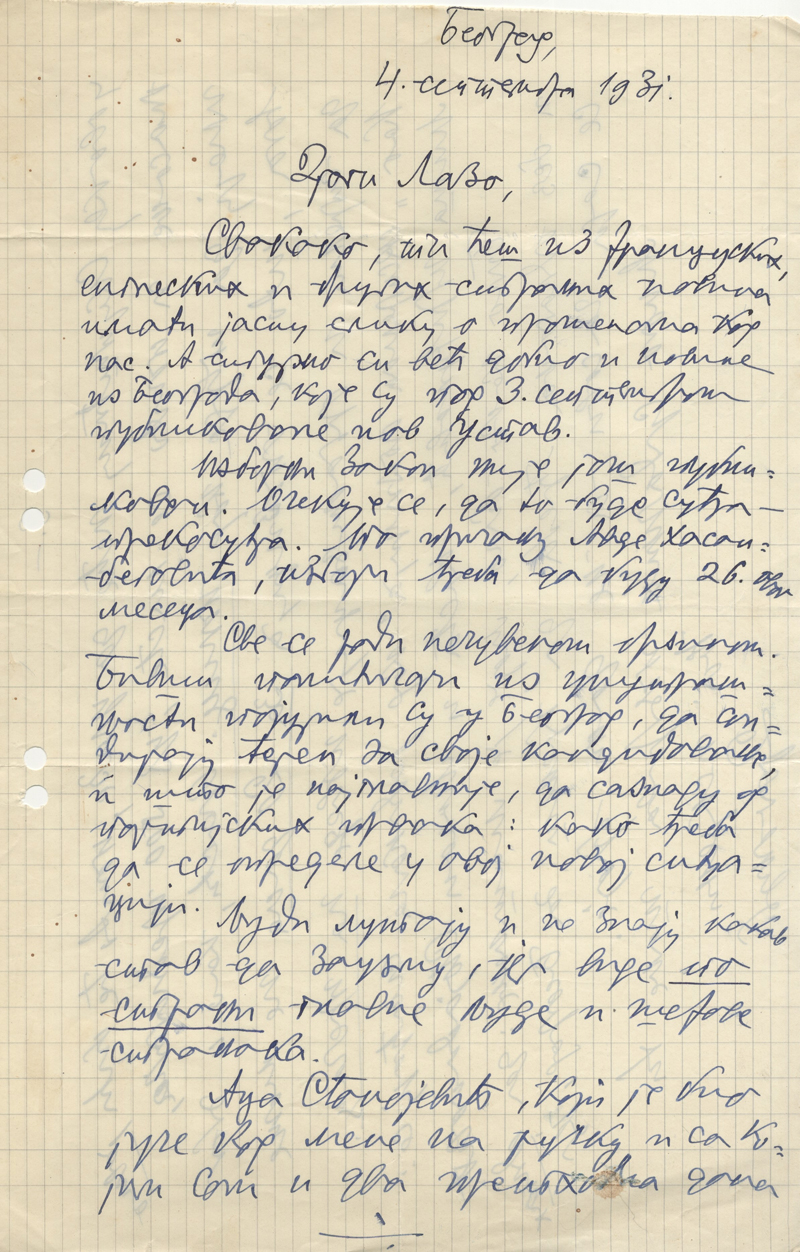 Београд,
4. септембра 1931.
Драги Лазо,
Свакако, ти ћеш из француских,
енглеских и других страних новина
имати јасну слику о променама код
нас. А сигурно си већ добио и новине
из Београда, које су пор 3. септембром
публиковале нов Устав.
Изборни закон није још публи=
кован. Очекује се, да то буде сутра—
прекосутра. По причању Авде Хасан=
беговића, избори треба да буду 26. овог
месеца.
Све се ради нечувеном брзином.
Бивши политичари из унутраш=
њости појурили су у Београд, да сон=
дирају терен за своје кандидовање,
и што је најглавније, да сазнаду од
партијских првака: како треба
да се определе у овој новој ситуа=
цији.
Људи лутају и не знају какав
став да заузму, јер виде по
страни главне људе и шефове
странака.
Аца Станојевић, који је био
јуче код мене на ручку и са ко=
јим сам и два претходна дана